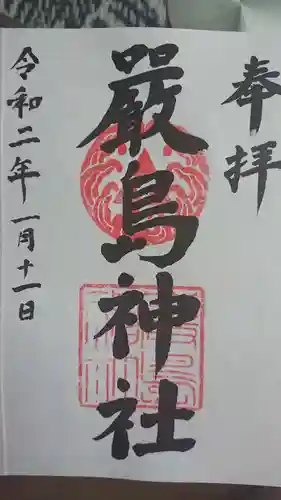 奉拝
厳島神社
令和二年一月十一日